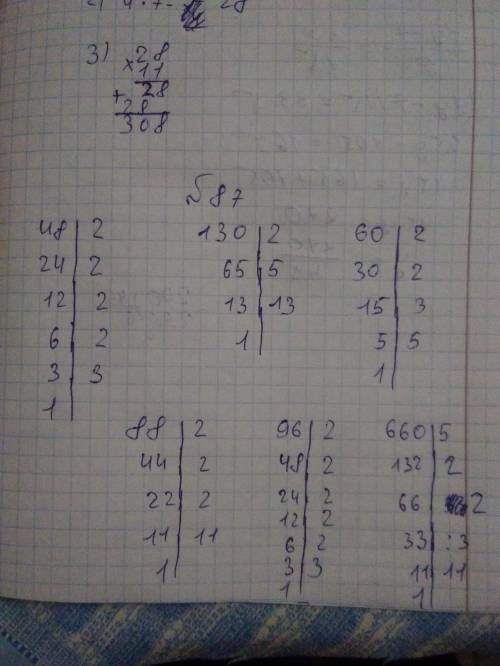 2) 4 · 7 = 28
3) 28
× 11
+ 28
28
308
№ 87
48 | 2
24 | 2
12 | 2
6 | 2
3 | 3
1
130 | 2
65 | 5
13 | 13
1
60 | 2
30 | 2
15 | 3
5 | 5
1
88 | 2
44 | 2
22 | 2
11 | 11
1
96 | 2
48 | 2
24 | 2
12 | 2
6 | 2
3 | 3
1
660 | 5
132 | 2
66 | 2
33 | : 3
11 | 11
1